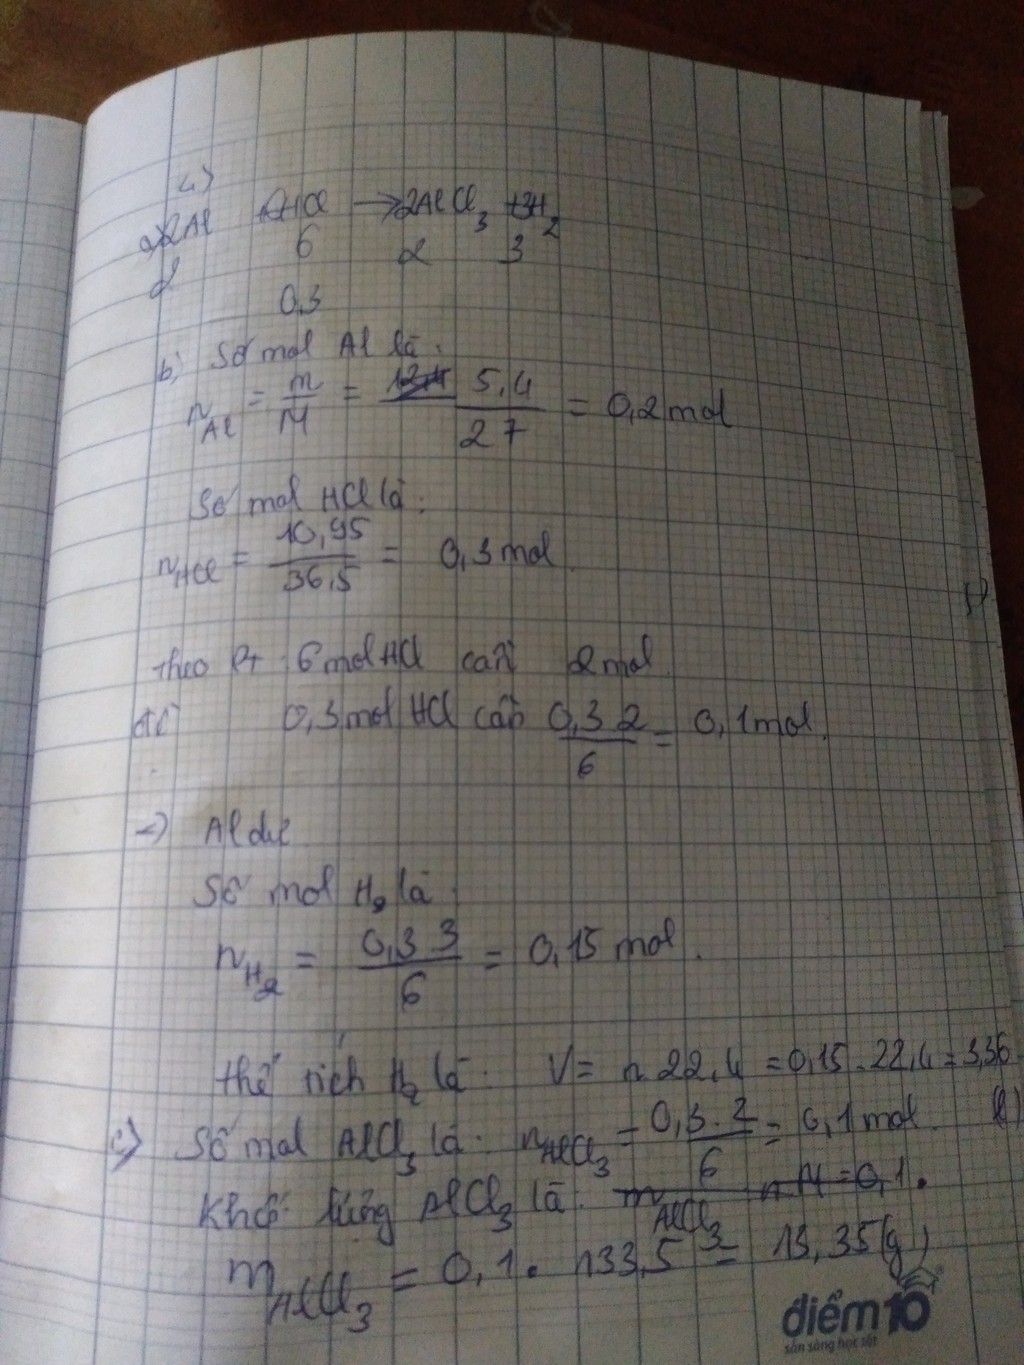 a) 2Al + 6HCl → 2AlCl3 + 3H2
2 6 2 3
0,3
b) Số mol Al là:
nAl = m/M = 5,4/27 = 0,2 mol
Số mol HCl là:
nHCl = 10,95/36,5 = 0,3 mol
theo Pt 6 mol HCl cần 2 mol
0,3 mol HCl cần 0,3 2/6 = 0,1 mol.
=) Al dư
Số mol H2 là
nH2 = 0,3 3/6 = 0,15 mol.
thể tích H2 là: V = n 22,4 = 0,15 . 22,4 = 3,36 (l)
c) Số mol AlCl3 là: nAlCl3 = 0,3 . 2/6 = 0,1 mol.
Khối lượng AlCl3 là: mAlCl3 n M = 0,1 .
mAlCl3 = 0,1 . 133,5 = 13,35 (g)
điểm10
sẵn sàng học tốt